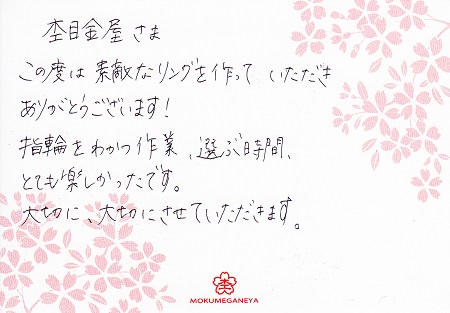 杢目金屋さま
この度は素敵なリングを作っていただき
ありがとうございます!
指輪をわかつ作業、選ぶ時間、
とても楽しかったです。
大切に、大切にさせていただきます。
杢
MOKUMEGANEYA